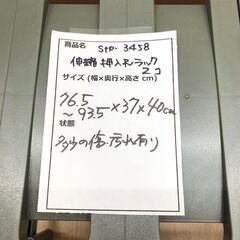 商品名 Stp-3458
伸縮押入れラック
2コ
サイズ(幅×奥行×高さcm)
76.5
〜93.5×37×40cm
状態
多少の傷・汚れ有り